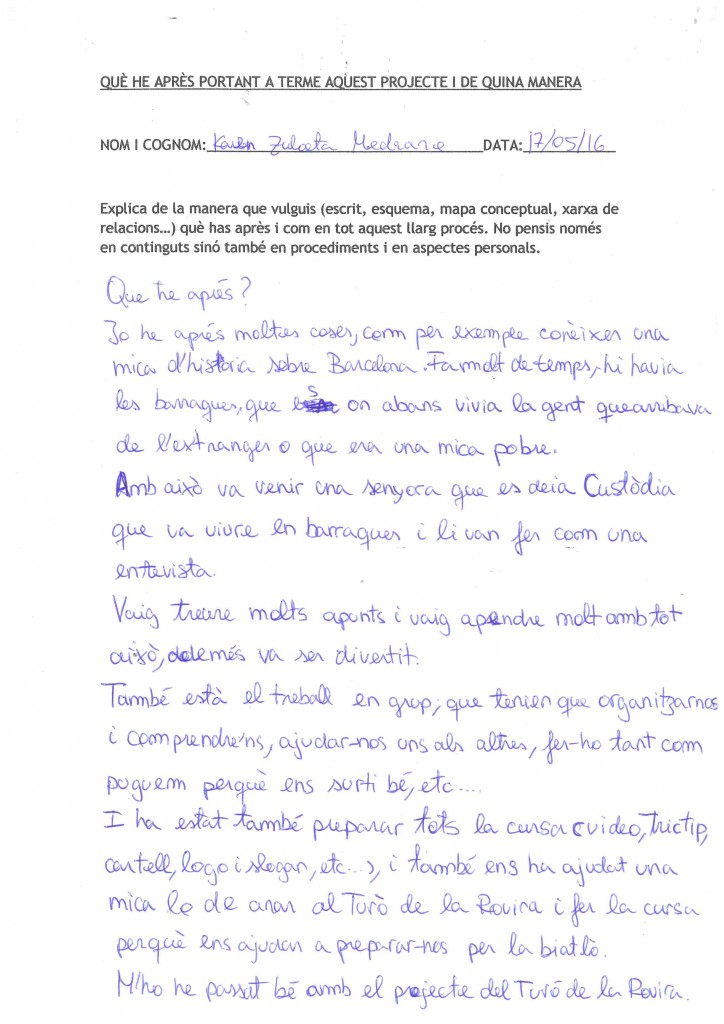 QUÈ HE APRÈS PORTANT A TERME AQUEST PROJECTE I DE QUINA MANERA
NOM I COGNOM: Karen Zulaeta Medrano DATA: 17/05/16
Explica de la manera que vulguis (escrit, esquema, mapa conceptual, xarxa de
relacions...) què has après i com en tot aquest llarg procés. No pensis només
en continguts sinó també en procediments i en aspectes personals.
Que he aprés?
Jo he aprés moltes coses, com per exemple conèixer una
mica d'història sobre Barcelona. Fa molt de temps, hi havia
les barraques, que s on abans vivia la gent que arribava
de l'extranger o que era una mica pobre.
Amb això va venir una senyora que es deia Custòdia
que va viure en barraques i li van fer com una
entevista.
Vaig treure molts apunts i vaig apendre molt amb tot
això, ademés va ser divertit.
També està el treball en grup, que tenien que organitzarnos
i comprendre'ns, ajudar-nos uns als altres, fer-ho tant com
puguem perquè ens surti bé, etc....
I ha estat també preparar tots la cursa (video, trictip,
cartell, logo i slogan, etc...), i també ens ha ajudat una
mica lo de anar al Turò de la Rovira i fer la cursa
perquè ens ajudan a preparar-nos per la biatlò.
M'ho he passat bé amb el projecte del Turó de la Rovira.